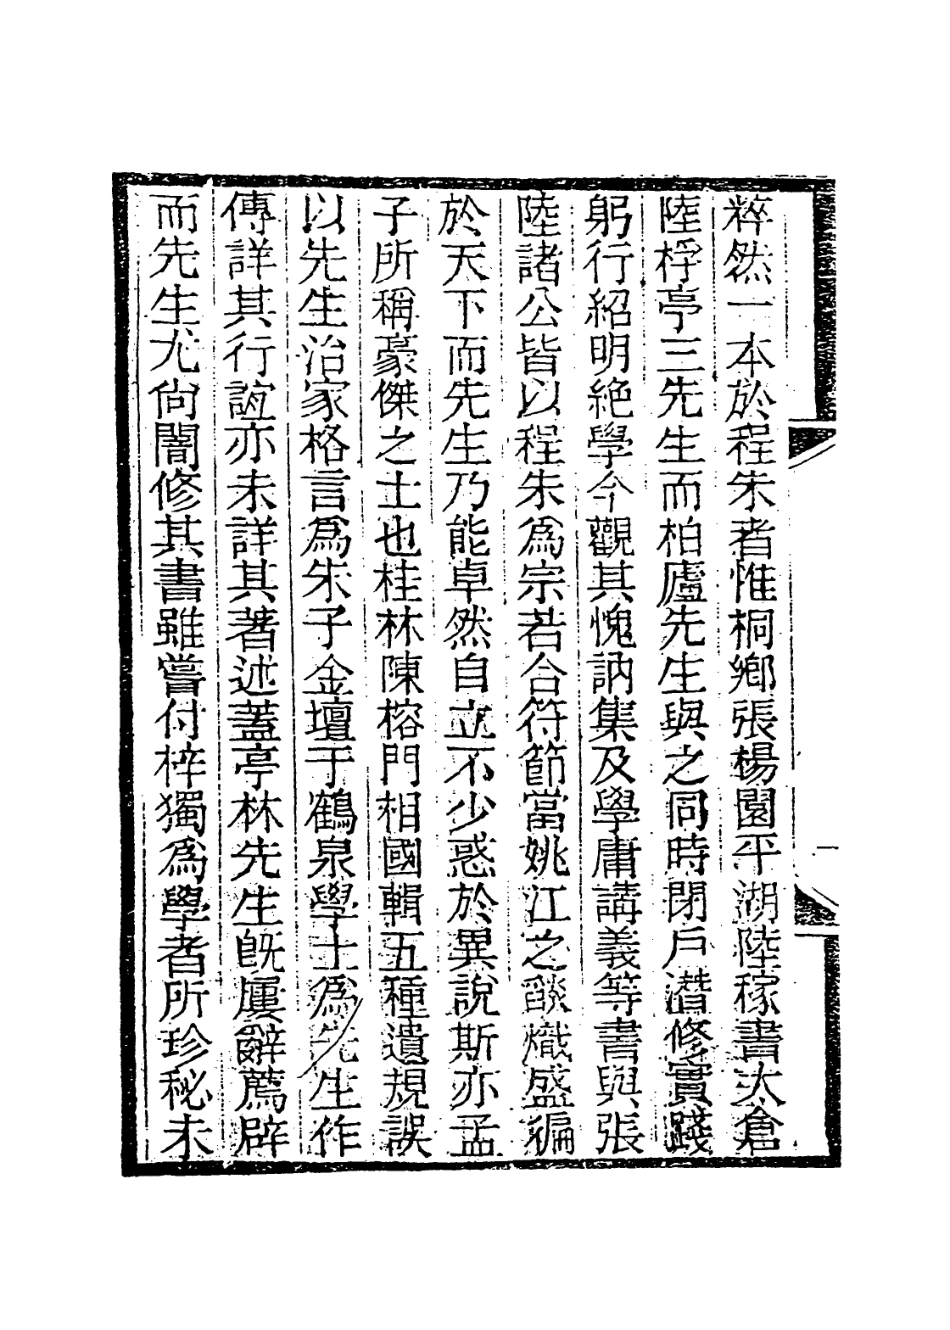 粹然一本於程朱者惟桐鄉張楊園平湖陸稼書太倉
陸桴亭三先生而柏廬先生與之同時閉戶潛修實踐
躬行紹明絶學今觀其愧訥集及學庸講義等書與張
陸諸公皆以程朱爲宗若合符節當姚江之燄熾盛徧
於天下而先生乃能卓然自立不少惑於異說斯亦孟
子所稱豪傑之士也桂林陳榕門相國輯五種遺規誤
以先生治家格言爲朱子金壇于鶴泉學士爲先生作
傳詳其行誼亦未詳其著述蓋亭林先生旣屢辭薦辟
而先生尤尙闇修其書雖嘗付梓獨爲學者所珍秘未
一